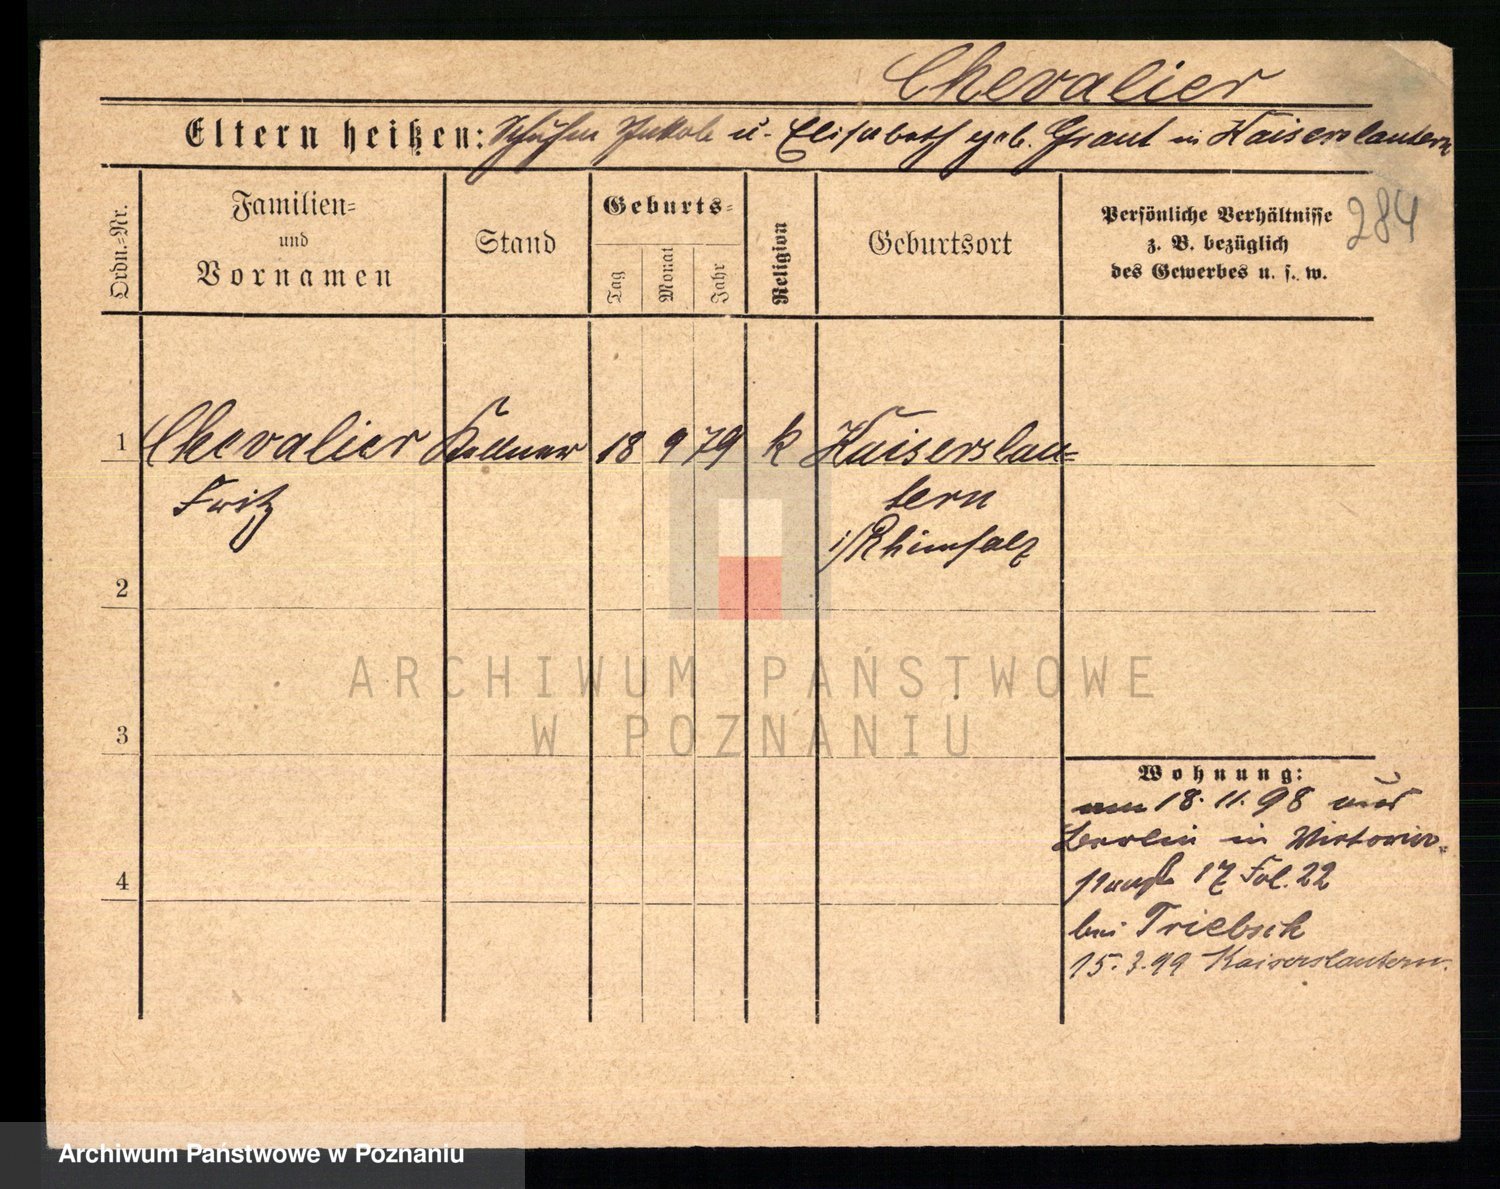 Chevalier
Eltern heißen: Jakob u. Elisabeth geb. Grant in Kaiserslautern
284
Ordn.-Nr.
Familien-
und
Vornamen
Stand
Geburts-
Tag
Monat
Jahr
Religion
Geburtsort
Persönliche Verhältnisse
z. B. bezüglich
des Gewerbes u. s. w.
1 Chevalier Kellner 18 9 79 k Kaiserslau-
Fritz tern
i/Rheinpfalz
2
3
4
ARCHIWUM PAŃSTWOWE
W POZNANIU
Wohnung:
am 18. 11. 98 aus
Berlin in Viktoria-
straße 17 Fol. 22
bei Triebsch
15. 3. 99 Kaiserslautern.
Archiwum Państwowe w Poznaniu